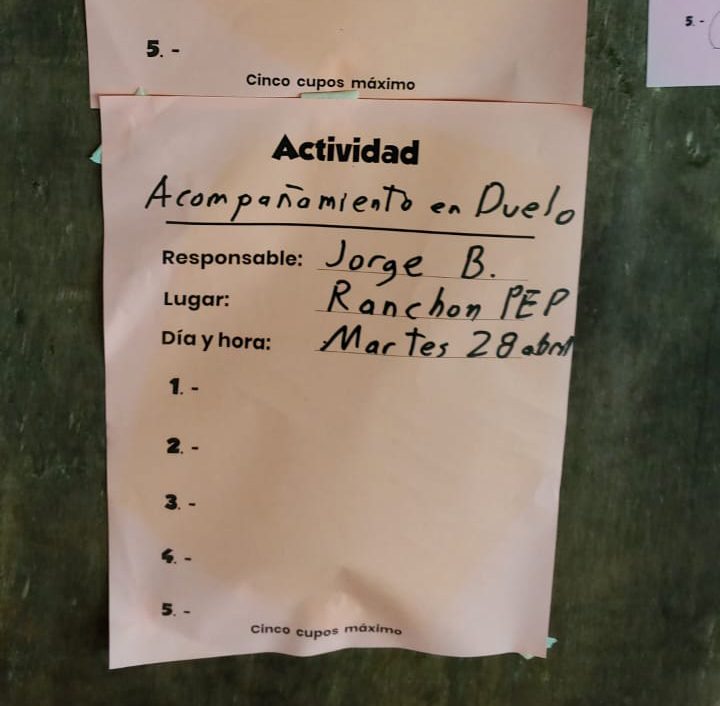 5. -
Cinco cupos máximo
5. -
Actividad
Acompañamiento en Duelo
Responsable: Jorge B.
Lugar: Ranchon PEP
Día y hora: Martes 28 abril
1. -
2. -
3. -
4. -
5. -
Cinco cupos máximo